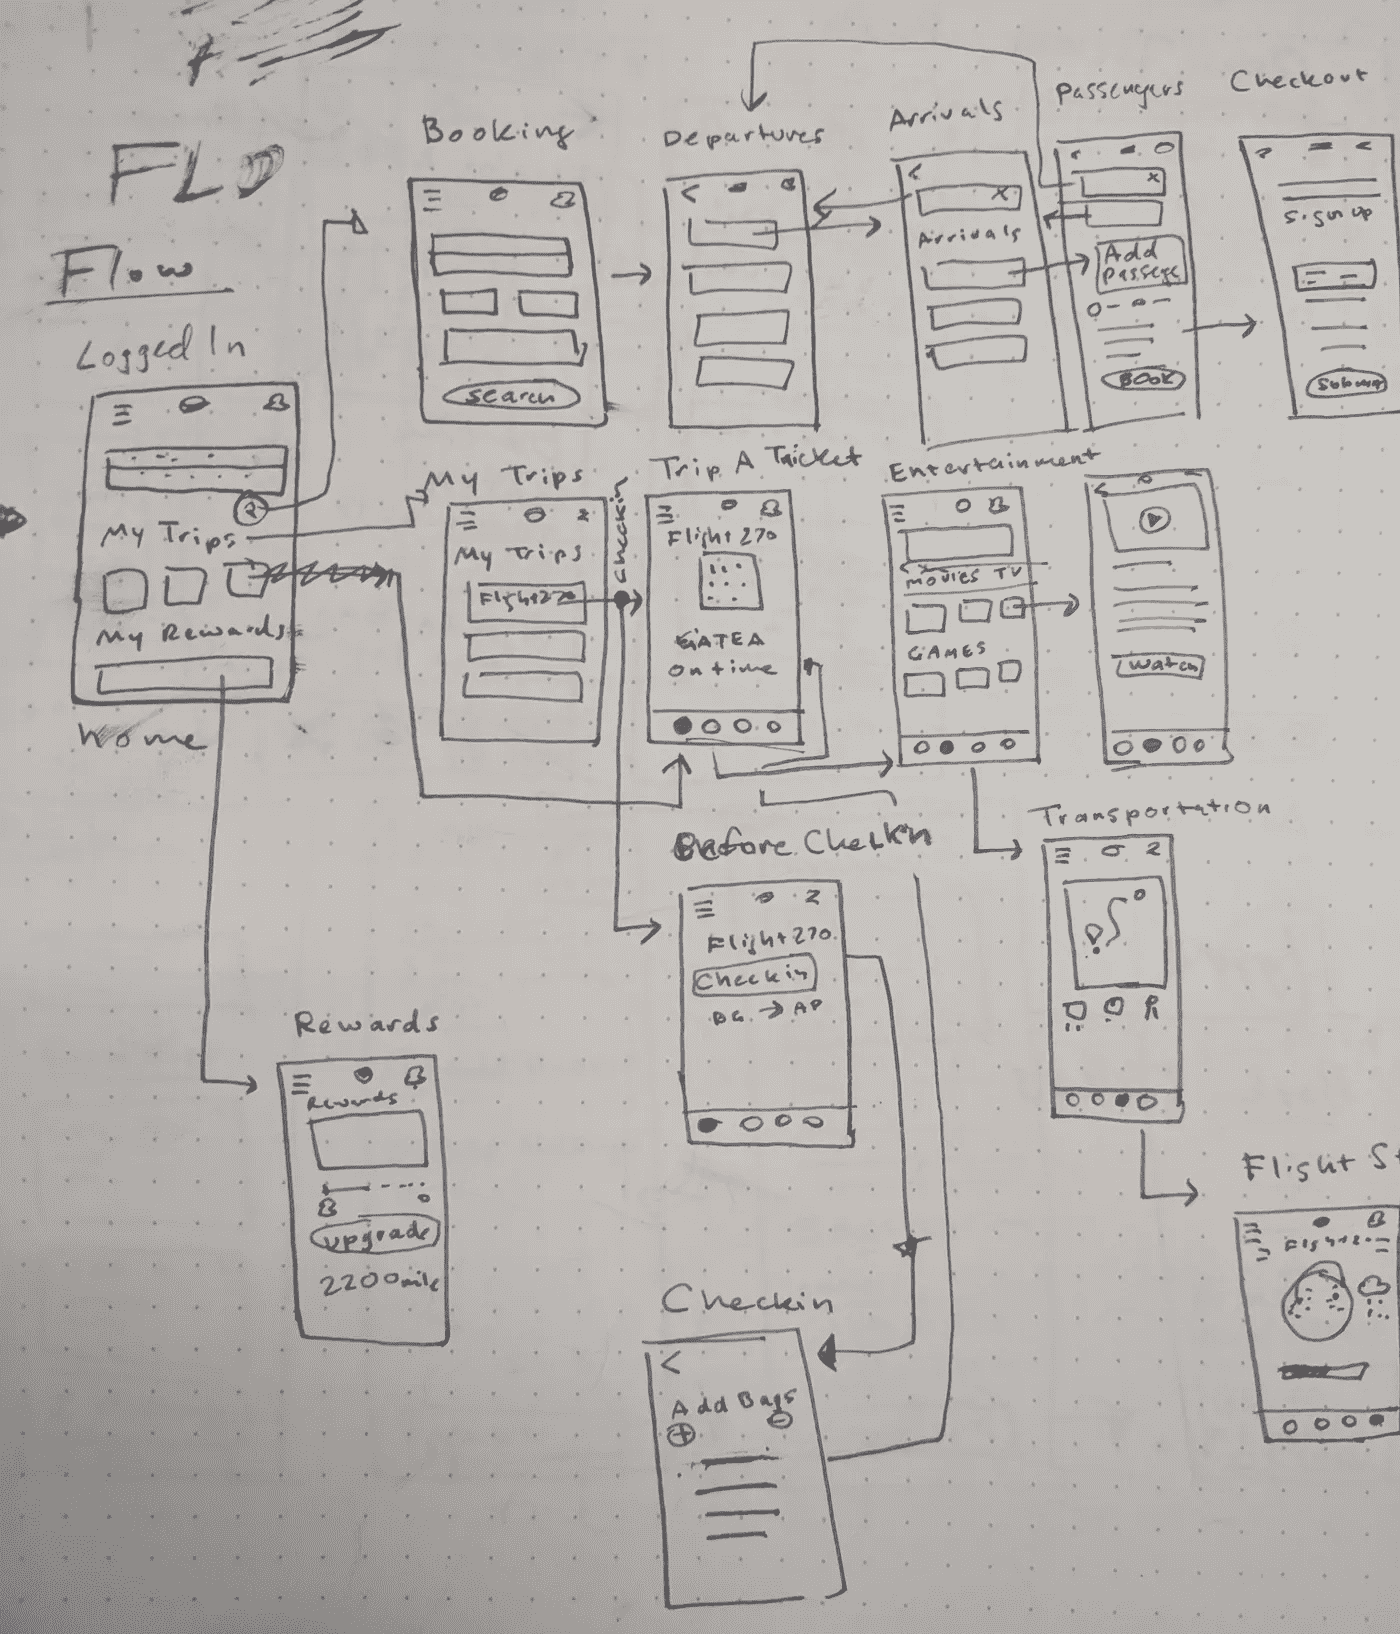 FLO
Flow
Logged In
My Trips
My Rewards
Home
Booking
Search
Departures
Arrivals
Arrivals
Passengers
Add
Passege
BOOK
Checkout
Sign up
Submit
My Trips
My Trips
Flight270
Checkin
Trip A Taicket
Flight270
GATEA
On time
Entertainment
MOVIES TV
GAMES
Watch
Before Checkin
Flight270
Checkin
DG → AP
Transportation
Rewards
Rewards
upgrade
2200mile
Checkin
Add Bags
Flight St